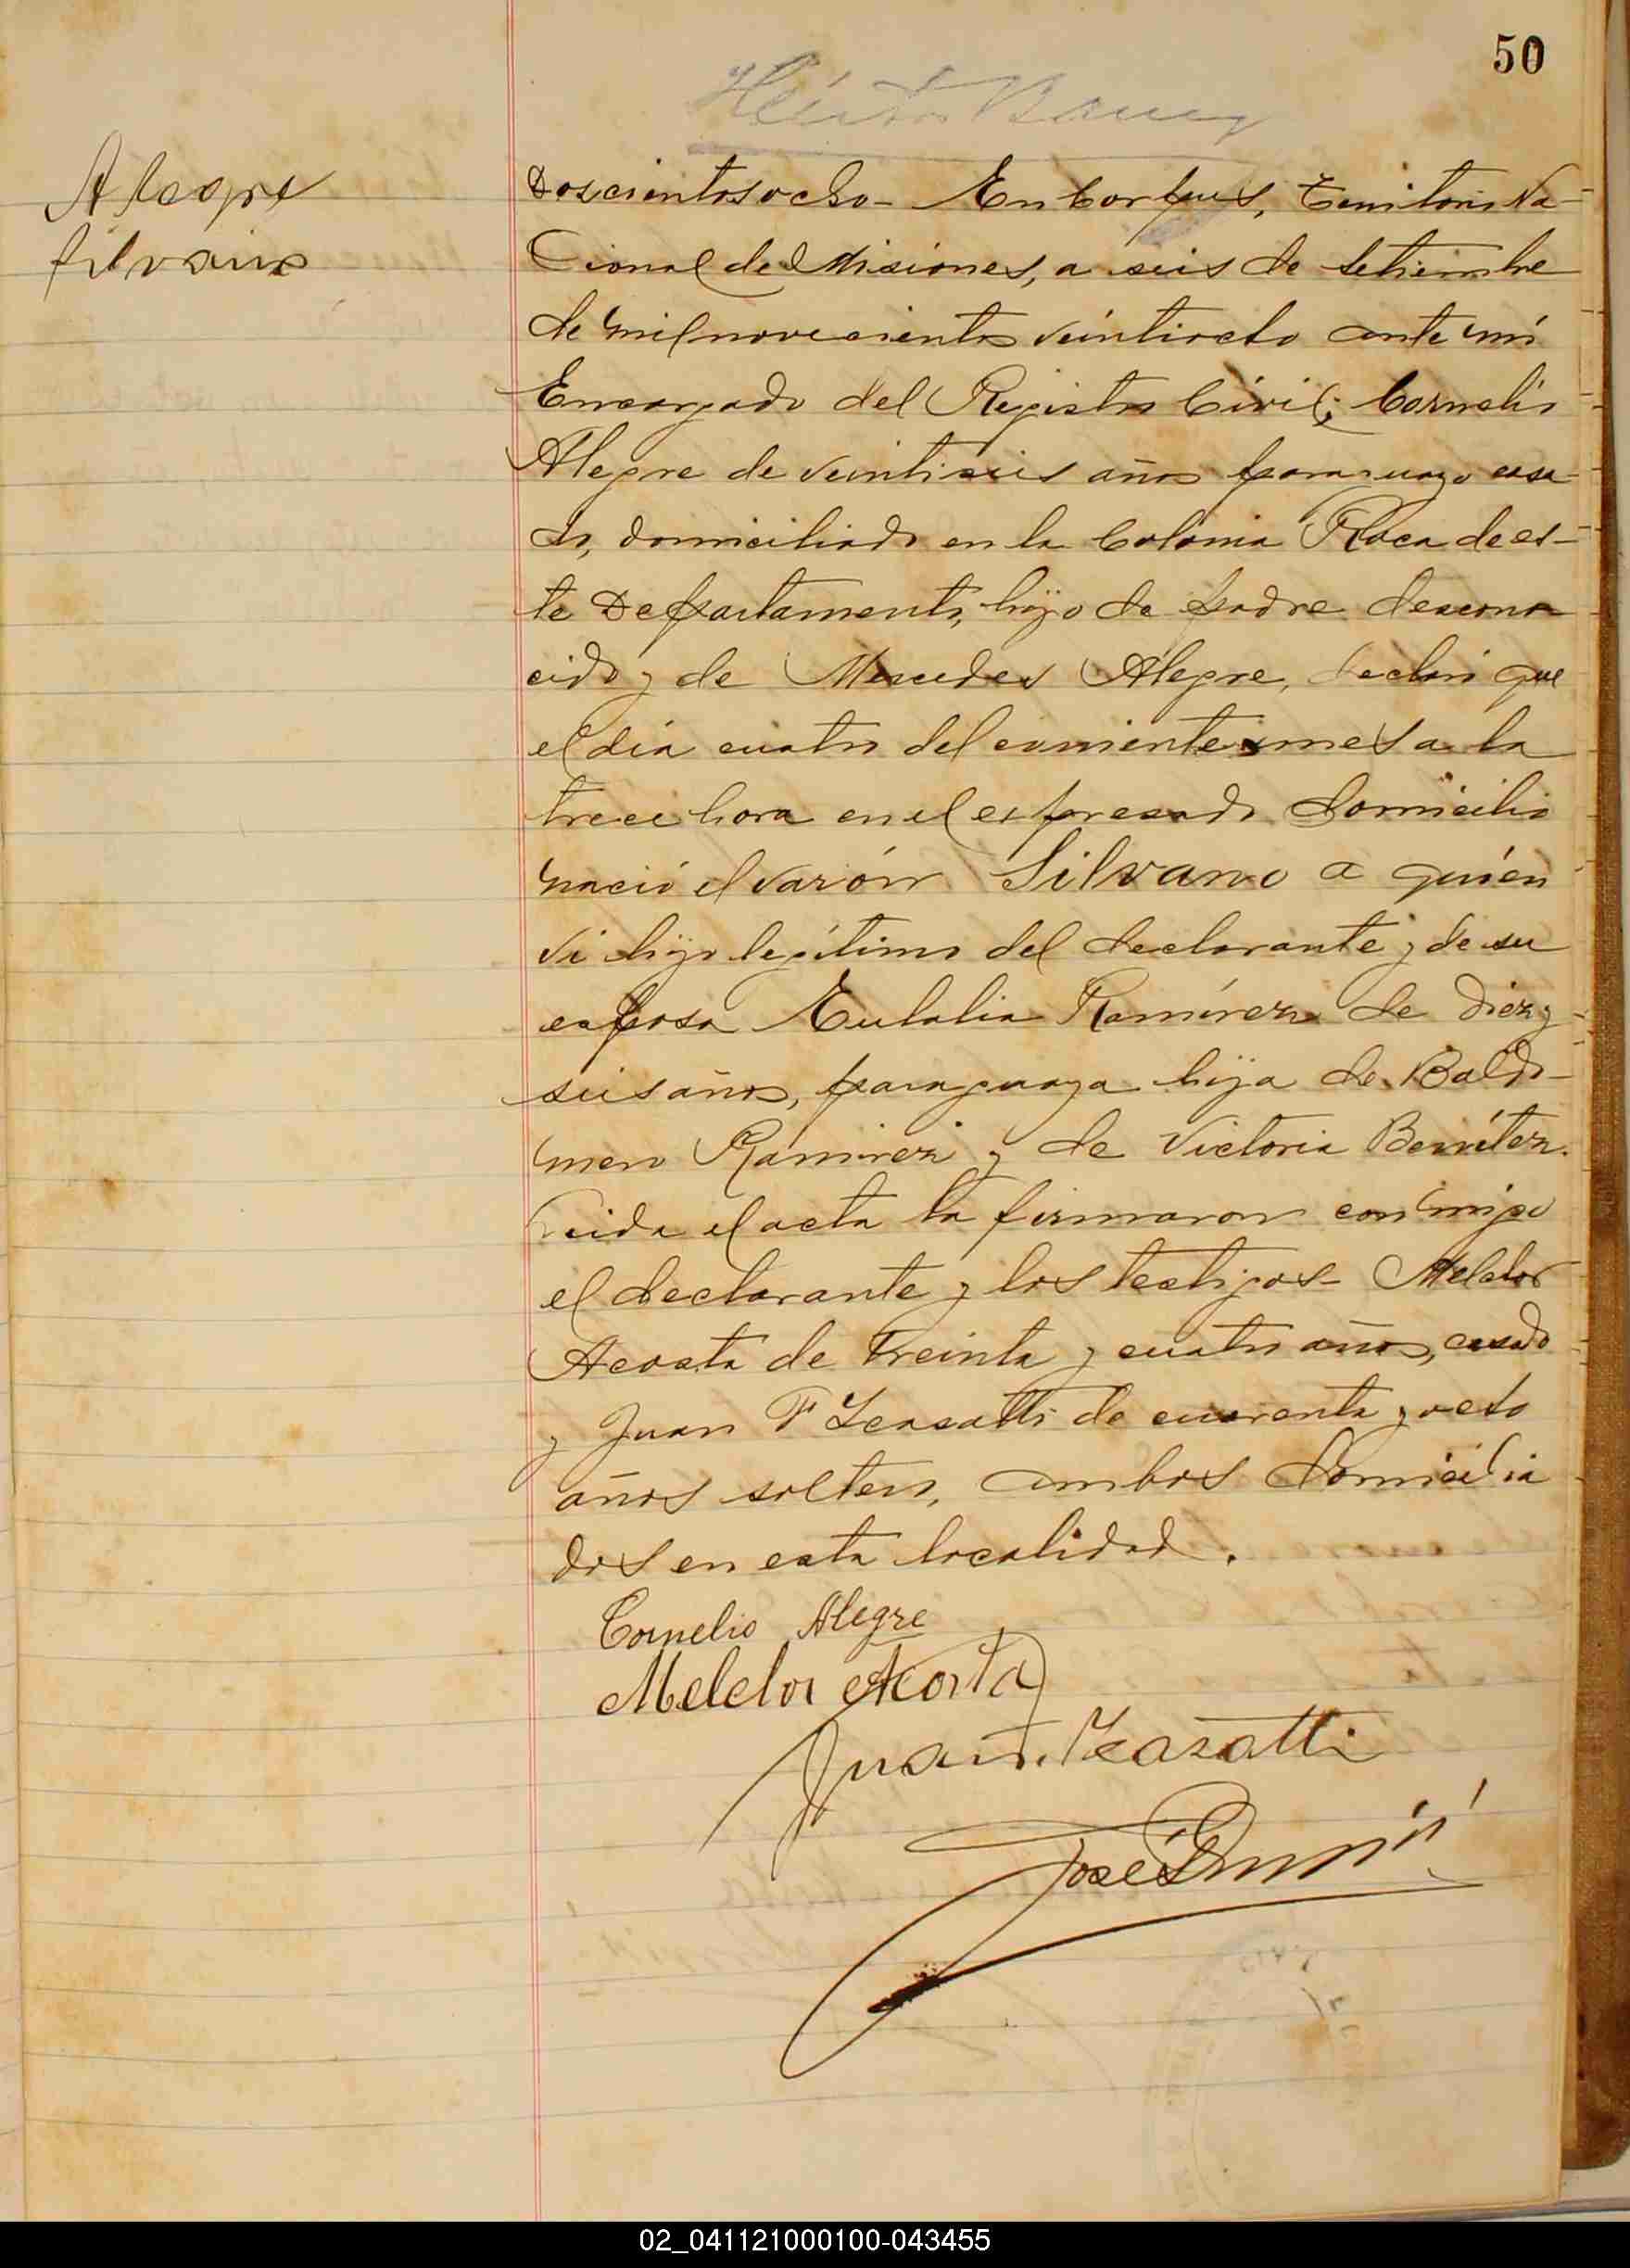 50
Alegre
Silvano
Doscientos ocho- En Corpus, Territorio Na-
cional de Misiones, a seis de Setiembre
de mil novecientos veintiocho ante mí
Encargado del Registro Civil; Cornelio
Alegre de veintiseis años paraguayo casa-
do, domiciliado en la Colonia Roca de es-
te Departamento, hijo de padre descono
cido y de Mercedes Alegre, declaró que
el día cuatro del corriente mes a la
trece hora en el expresado domicilio
nació el varón Silvano a quién
vi hijo legítimo del declarante y de su
esposa Eulalia Ramírez de diez y
seis años, paraguaya hija de Baldo-
mero Ramirez y de Victoria Benítez.
Leida el acta la firmaron conmigo
el declarante y los testigos Melchor
Acosta de treinta y cuatro años, casado
y Juan F de cuarenta y ocho
años soltero, ambos domicilia
dos en esta localidad.
Cornelio Alegre
Melchor Acosta
Juan F.
José
02_041121000100-043455